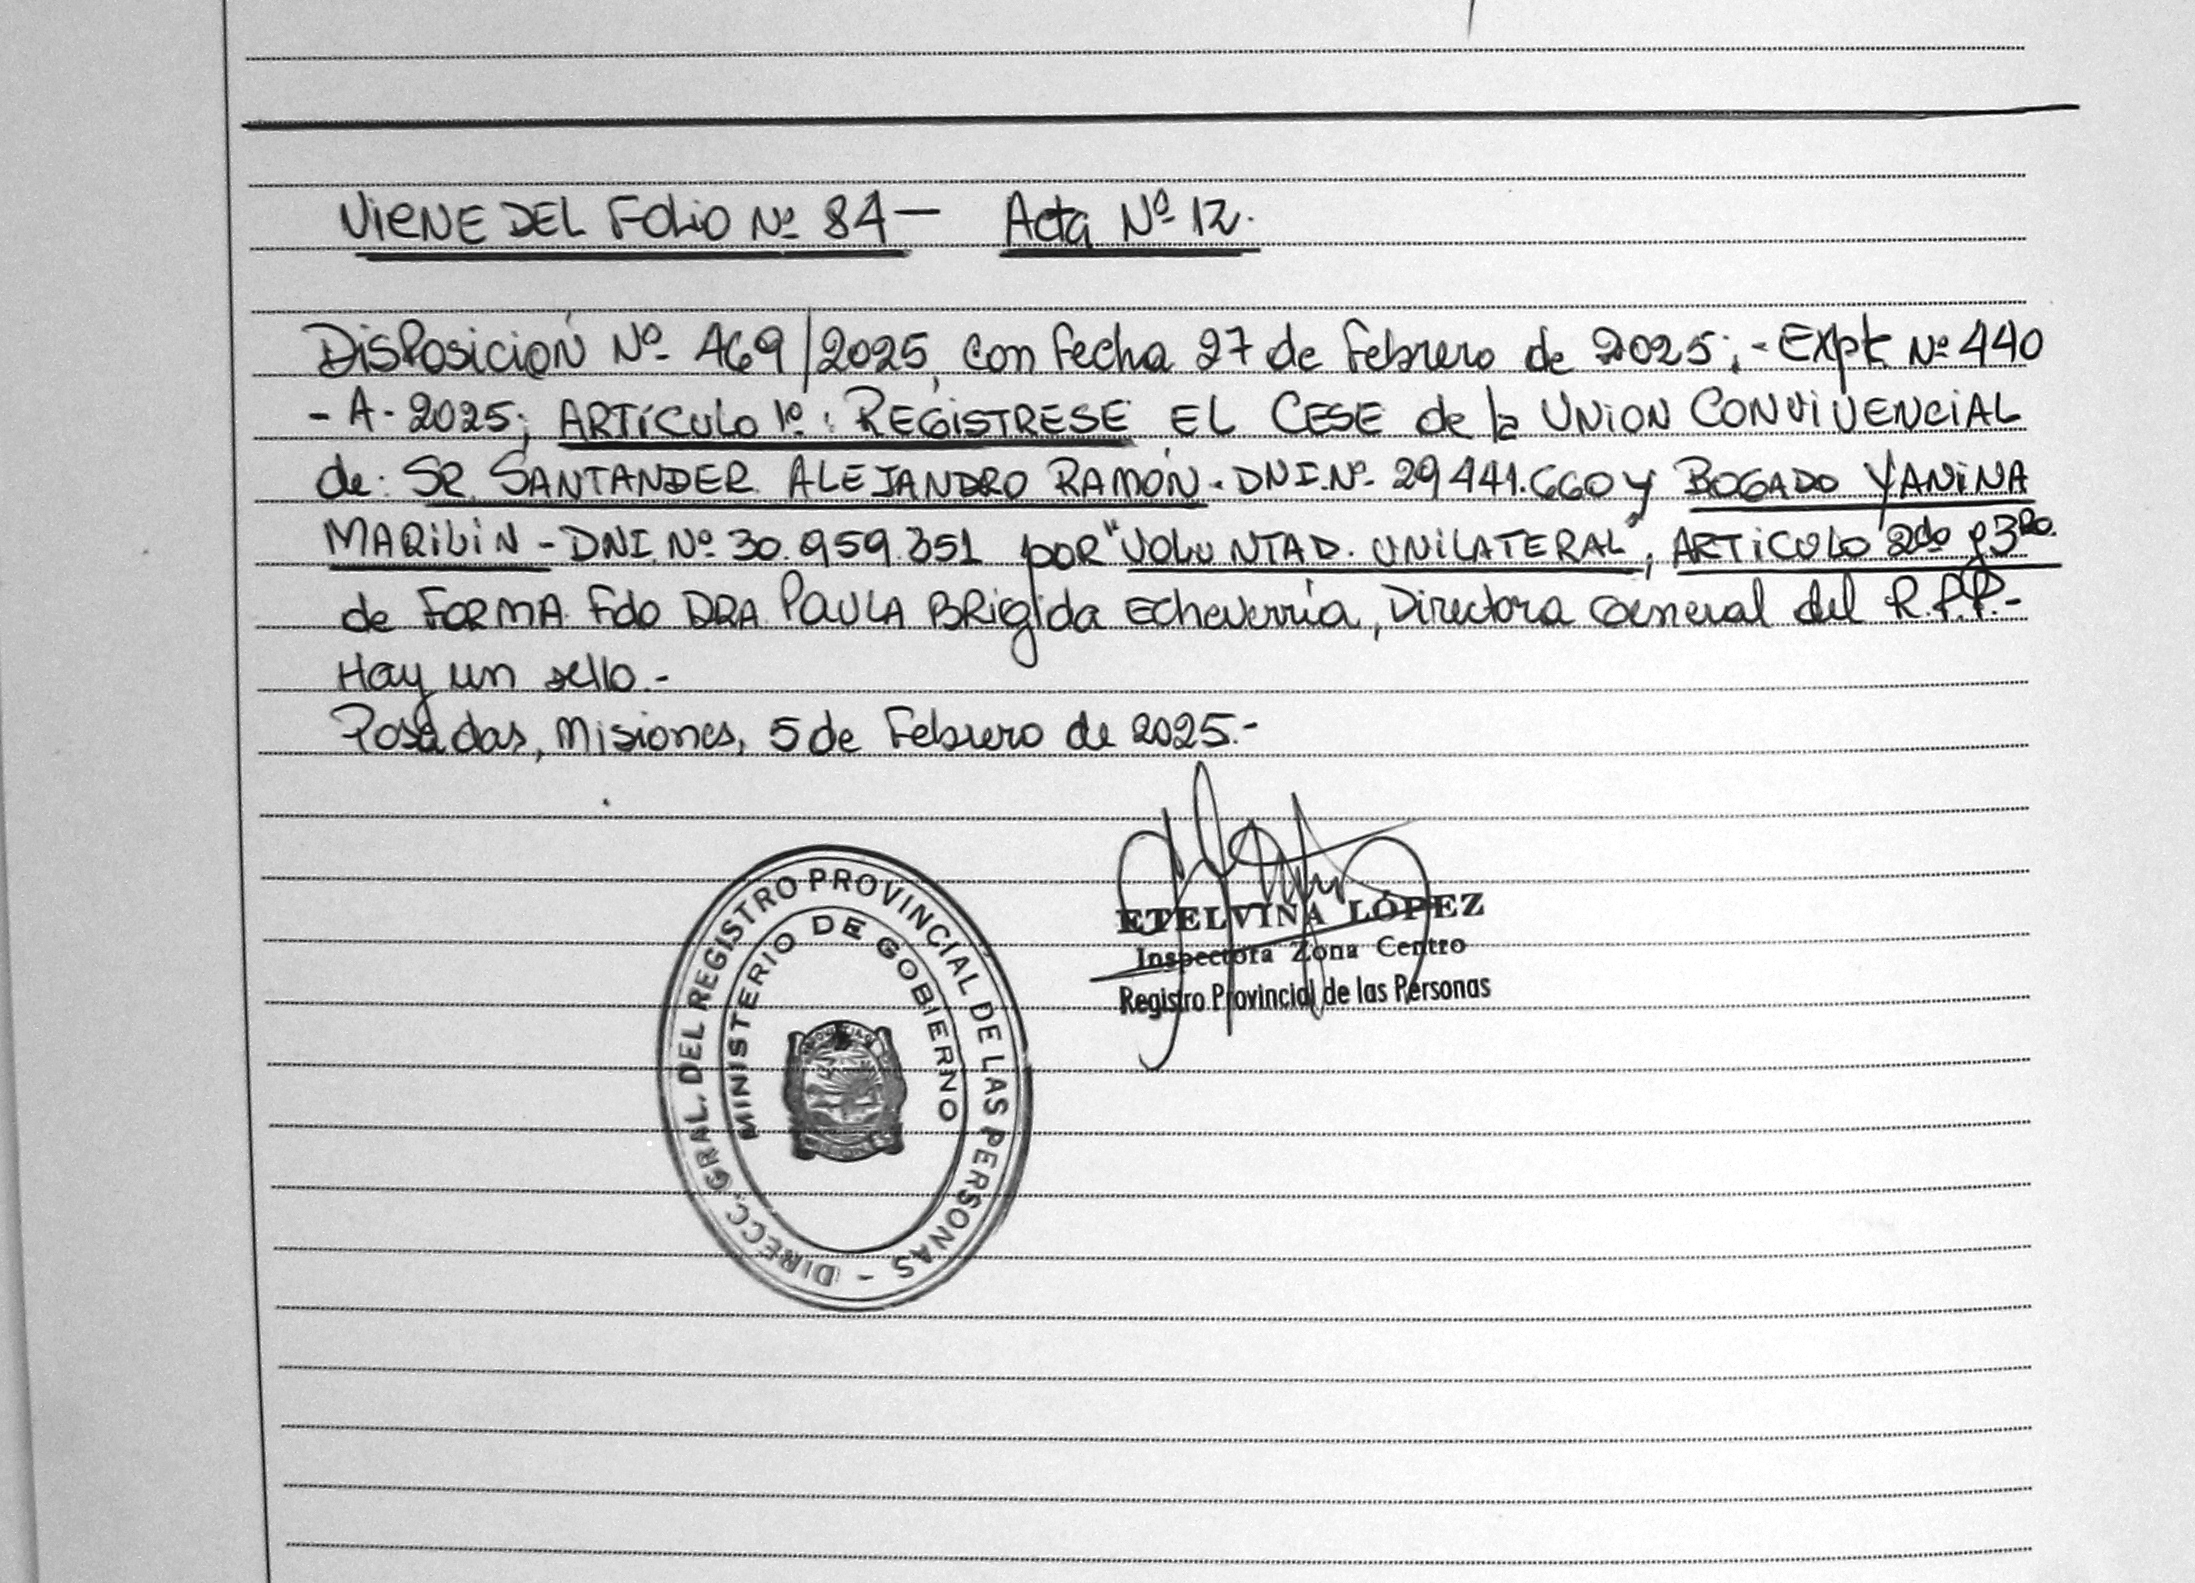 VIENE DEL FOLIO Nº 84 — Acta Nº 12.
DisPosicion Nº 469/2025, con fecha 27 de febrero de 2025; - Expte Nº 440
- A - 2025; ARTÍCULO 1º: REGISTRESE EL CESE de la UNION CONVIVENCIAL
de: SR. SANTANDER ALEJANDRO RAMÓN - DNI. Nº 29.441.660 y BOGADO YANINA
MARILIN - DNI. Nº 30.959.351 por "VOLUNTAD. UNILATERAL", ARTICULO 2do y 3Ro.
de FORMA. Fdo DRA PAULA BRigida Echeverría, Directora General del R.P.P.-
Hay un sello.-
Posadas, Misiones, 5 de Febrero de 2025.-
ETELVINA LÓPEZ
Inspectora Zona Centro
Registro Provincial de las Personas
DIRECC. GRAL. DEL REGISTRO PROVINCIAL DE LAS PERSONAS -
MINISTERIO DE GOBIERNO